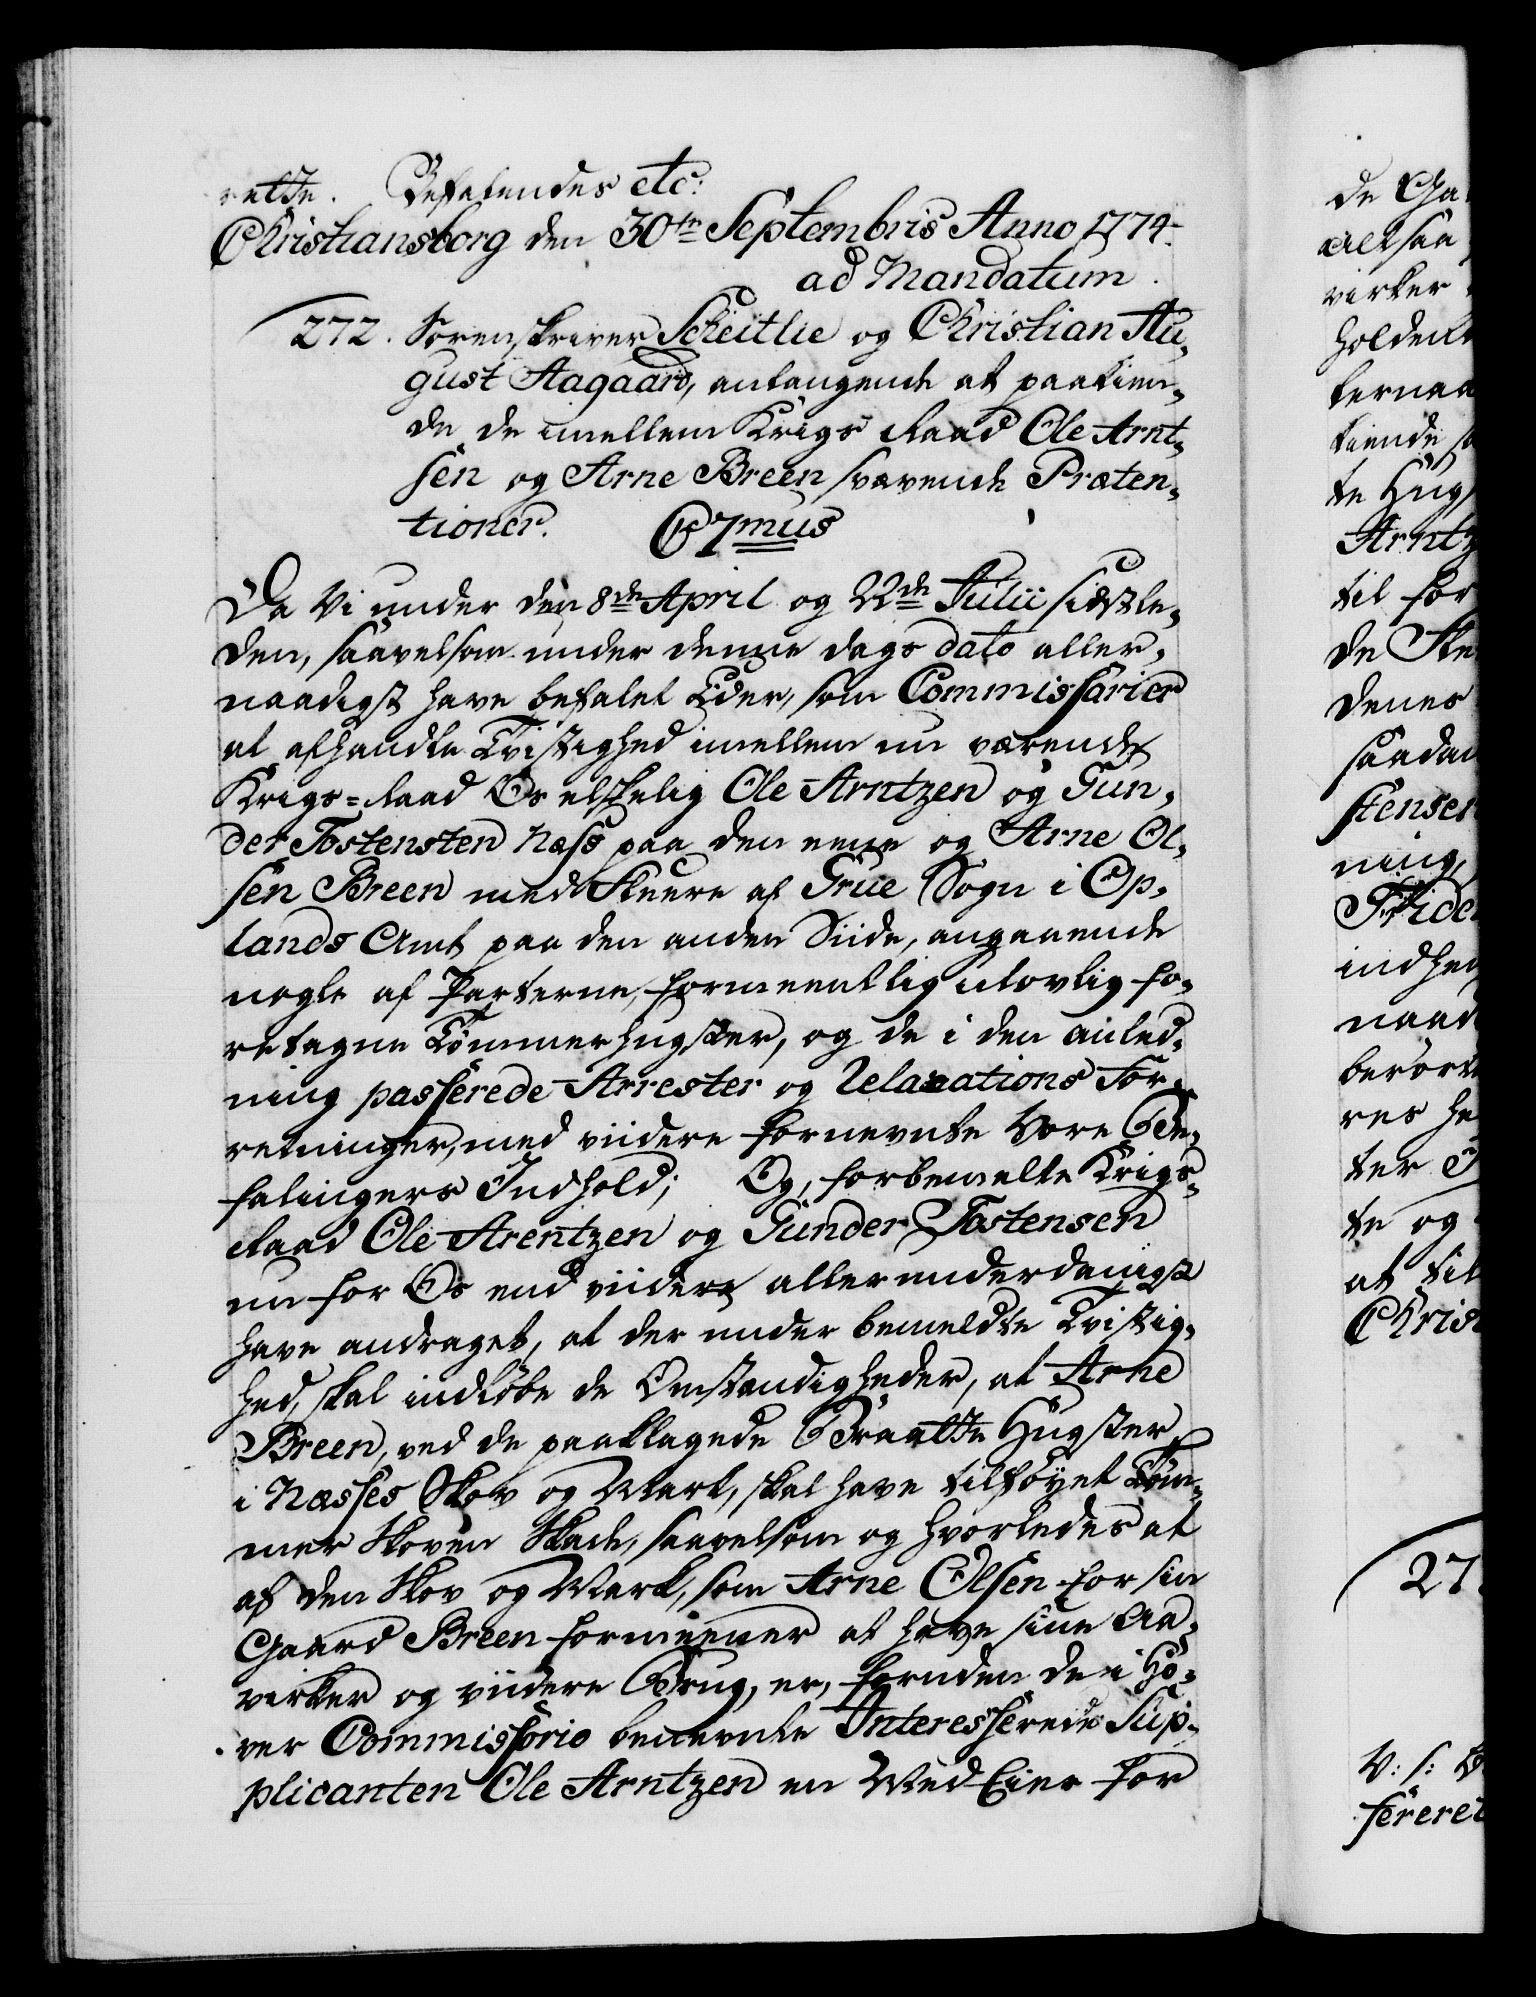 rette. Befalendes etc:
Christiansborg den 30te Septembris Anno 1774.
ad Mandatum.
272. Sorenskriver Scheitlie og Christian Au-
gust Aagaard, anlangende at paakien-
de de imellem Krigs Raad Ole Arnt-
sen og Arne Breen svævende Præten-
tioner. C7mus
Da Vi under den 8de April og 22de Julii sidstle-
den, saavelsom under denne dags dato aller-
naadigst have befalet Eder, som Commissarier
at afhandle Tvistighed imellem nu værende
Krigs-Raad Os elskelig Ole Arntzen og Gun-
der Tostensten Næss paa den eene og Arne Ol-
sen Breen med Fleere af Grue Sogn i Op-
lands Amt paa den anden Siide, angaaende
nogle af Parterne, formeentlig ulovlig fo-
retagne Tømmerhugster, og de i den anled-
ning passerede Arrester og Relaxations For-
retninger, med viidere fornevnte Vore Be-
falingers Indhold; Og, forbemelte Krigs-
Raad Ole Arentzen og Gunder Tostensen
nu for Os end viidere allerunderdanigst
have andraget, at der under bemeldte Tvistig-
hed, skal indløbe de Omstændigheder, at Arne
Breen, ved de paaklagede Braatte Hugster
i Næsses Skov og Mark, skal have tilføyet Tøm-
mer Skoven Skade, saavelsom og hvorledes at
af den Skov og Mark, som Arne Olsen for sin
Gaard Breen formeener at have sine Aa-
virker og viidere Brug, er, foruden de i Ho-
ver Commissorio benevnte Interesserede Sup-
plicanten Ole Arntzen en Med Eier for
de Ga
alt saa
virker
holden
fernaa
kiende
te Hug
Arntz
til for
de Ste
denes
saadan
stensen
ning,
Fride
indhe
naad
berørt
res he
ter
te og
at til
Chris
27
V: S:
fereret